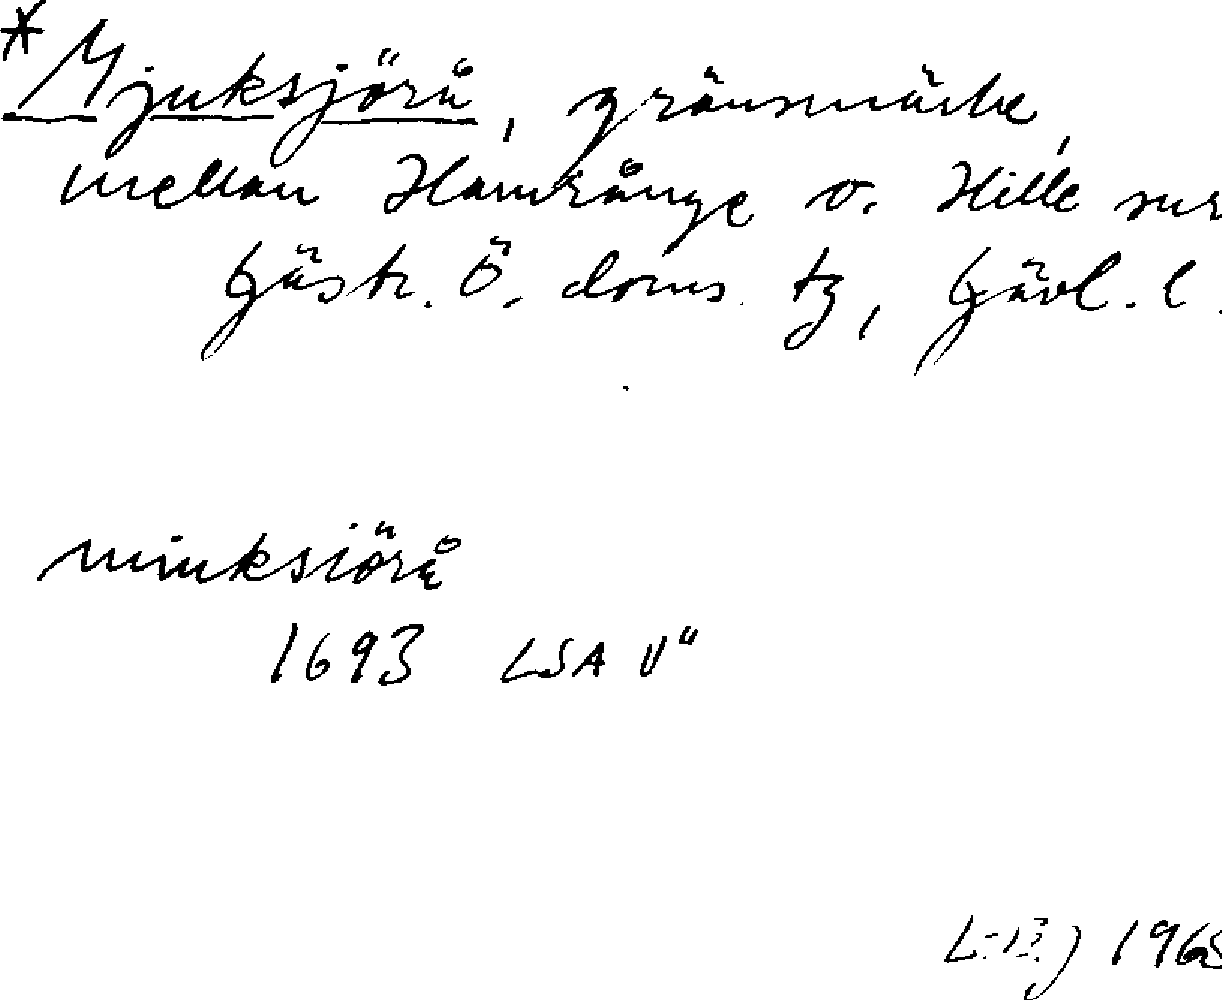 *Mjuksjörå, gränsmärke,
mellan Hamrånge o. Hille snr
Gästr. Ö. doms. tg, Gävl. l.
miuksiörå
1693 LSA V"